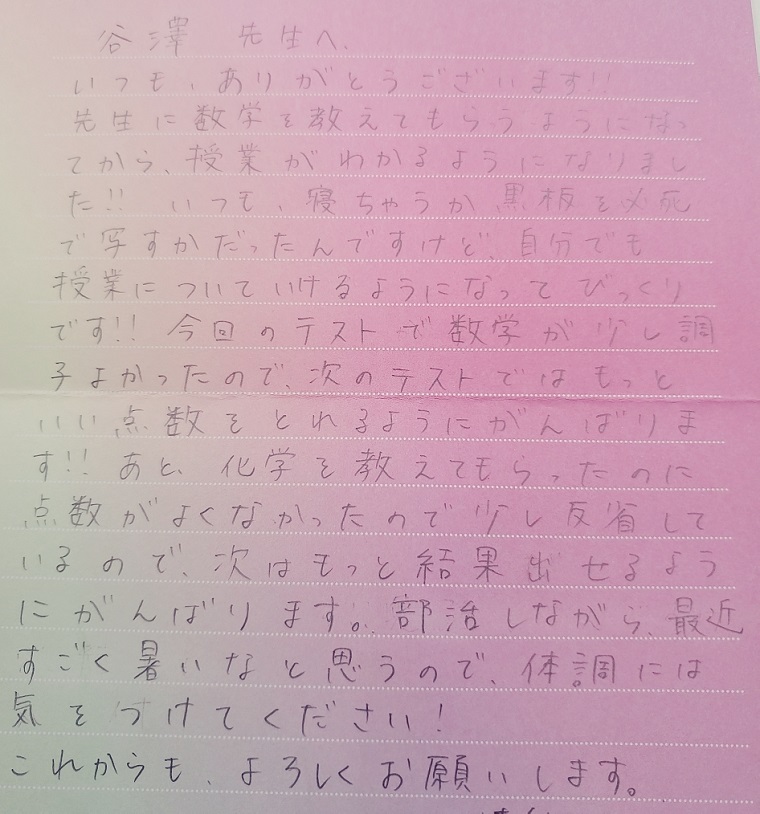 谷澤 先生へ、
いつも、ありがとうございます!!
先生に数学を教えてもらうようになっ
てから、授業がわかるようになりまし
た!! いつも、寝ちゃうか黒板を必死
で写すかだったんですけど、自分でも
授業についていけるようになってびっくり
です!! 今回のテストで数学が少し調
子よかったので、次のテストではもっと
いい点数をとれるようにがんばりま
す!! あと、化学を教えてもらったのに
点数がよくなかったので少し反省して
いるので、次はもっと結果出せるよう
にがんばります。部活しながら、最近
すごく暑いなと思うので、体調には
気をつけてください!
これからも、よろしくお願いします。